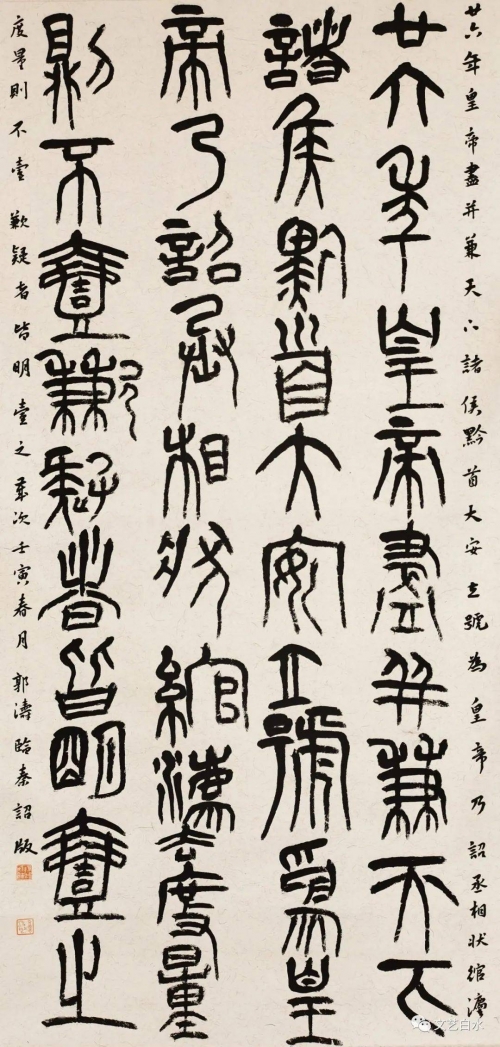 廿六年皇帝盡并兼天下諸侯黔首大安立號為皇帝乃詔丞相狀綰灋
廿六年皇帝盡并兼天下
諸侯黔首大安立號為皇
帝乃詔丞相狀綰灋度量
則不壹歉疑者皆明壹之
度量則不壹歉疑者皆明壹之歲次壬寅春月郭濤臨秦詔版
文艺白水